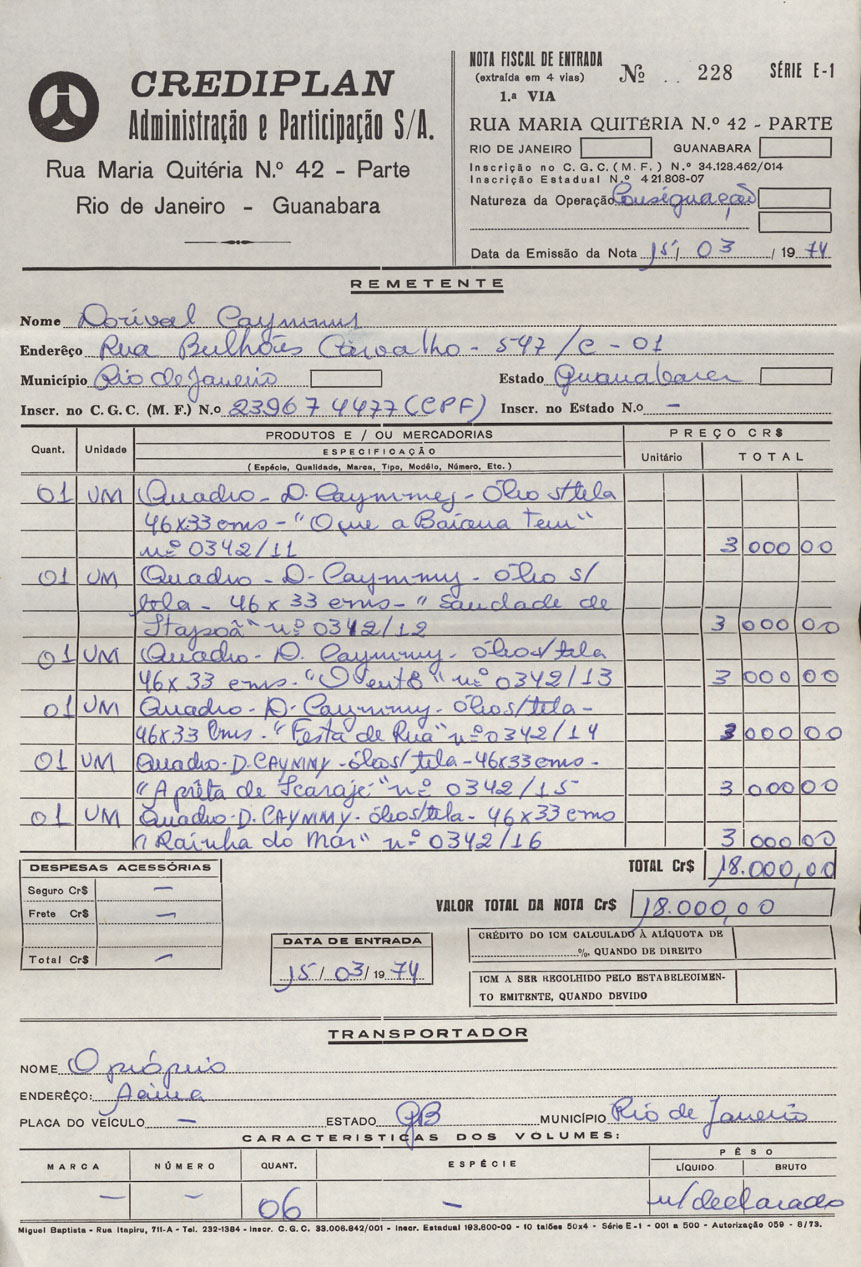 CREDIPLAN
Administração e Participação S/A.
Rua Maria Quitéria N.º 42 - Parte
Rio de Janeiro - Guanabara
NOTA FISCAL DE ENTRADA
(extraída em 4 vias)
1.ª VIA
Nº 228 SÉRIE E-1
RUA MARIA QUITÉRIA N.º 42 - PARTE
RIO DE JANEIRO GUANABARA
Inscrição no C.G.C. (M.F.) N.º 34.128.462/014
Inscrição Estadual N.º 421.808-07
Natureza da Operação Consignação
Data da Emissão da Nota 15/ 03 / 19 74
REMETENTE
Nome Dorival Caymmi
Enderêço Rua Bulhões Carvalho - 547 / C - 01
Município Rio de Janeiro Estado Guanabara
Inscr. no C.G.C. (M.F.) N.º 239674477 (CPF) Inscr. no Estado N.o -
Quant. Unidade PRODUTOS E / OU MERCADORIAS PREÇO CR$
ESPECIFICAÇÃO
(Espécie, Qualidade, Marca, Tipo, Modêlo, Número, Etc.) Unitário TOTAL
01 UM Quadro - D. Caymmy - Óleo s/tela
46x33 cms - "O que a Baiana Tem"
nº 0342/11 3 000 00
01 UM Quadro - D. Caymmy - óleo s/
tela - 46 x 33 cms - "Saudade de
Itapoã" nº 0342/12 3 000 00
01 UM Quadro - D. Caymmy - óleo s/tela
46x 33 cms. "O vento" nº 0342/13 3 000 00
01 UM Quadro - D. Caymmy - óleo s/tela -
46x33 Cms. "Festa de Rua" nº 0342/14 3 000 00
01 UM Quadro - D. CAYMMY - óleo s/tela - 46x33 cms -
"A prêta de Acarajé" nº 0342/15 3 000 00
01 UM Quadro - D. CAYMMY - óleo s/tela - 46x33 cms
"Rainha do Mar" nº 0342/16 3 000 00
TOTAL Cr$ 18.000,00
DESPESAS ACESSÓRIAS
Seguro Cr$ -
Frete Cr$ -
Total Cr$ -
VALOR TOTAL DA NOTA Cr$ 18.000,00
DATA DE ENTRADA
15/ 03/ 19 74
CRÉDITO DO ICM CALCULADO À ALÍQUOTA DE
%, QUANDO DE DIREITO
ICM A SER RECOLHIDO PELO ESTABELECIMEN-
TO EMITENTE, QUANDO DEVIDO
TRANSPORTADOR
NOME O próprio
ENDERÊÇO: Acima
PLACA DO VEÍCULO - ESTADO GB MUNICÍPIO Rio de Janeiro
CARACTERISTICAS DOS VOLUMES:
MARCA NÚMERO QUANT. ESPÉCIE PÊSO
LÍQUIDO BRUTO
- - 06 - n/declarado
Miguel Baptista - Rua Itapiru, 711-A - Tel. 232-1384 - Inscr. C.G.C. 33.006.842/001 - Inscr. Estadual 193.600-00 - 10 talões 50x4 - Série E-1 - 001 a 500 - Autorização 059 - 8/73.